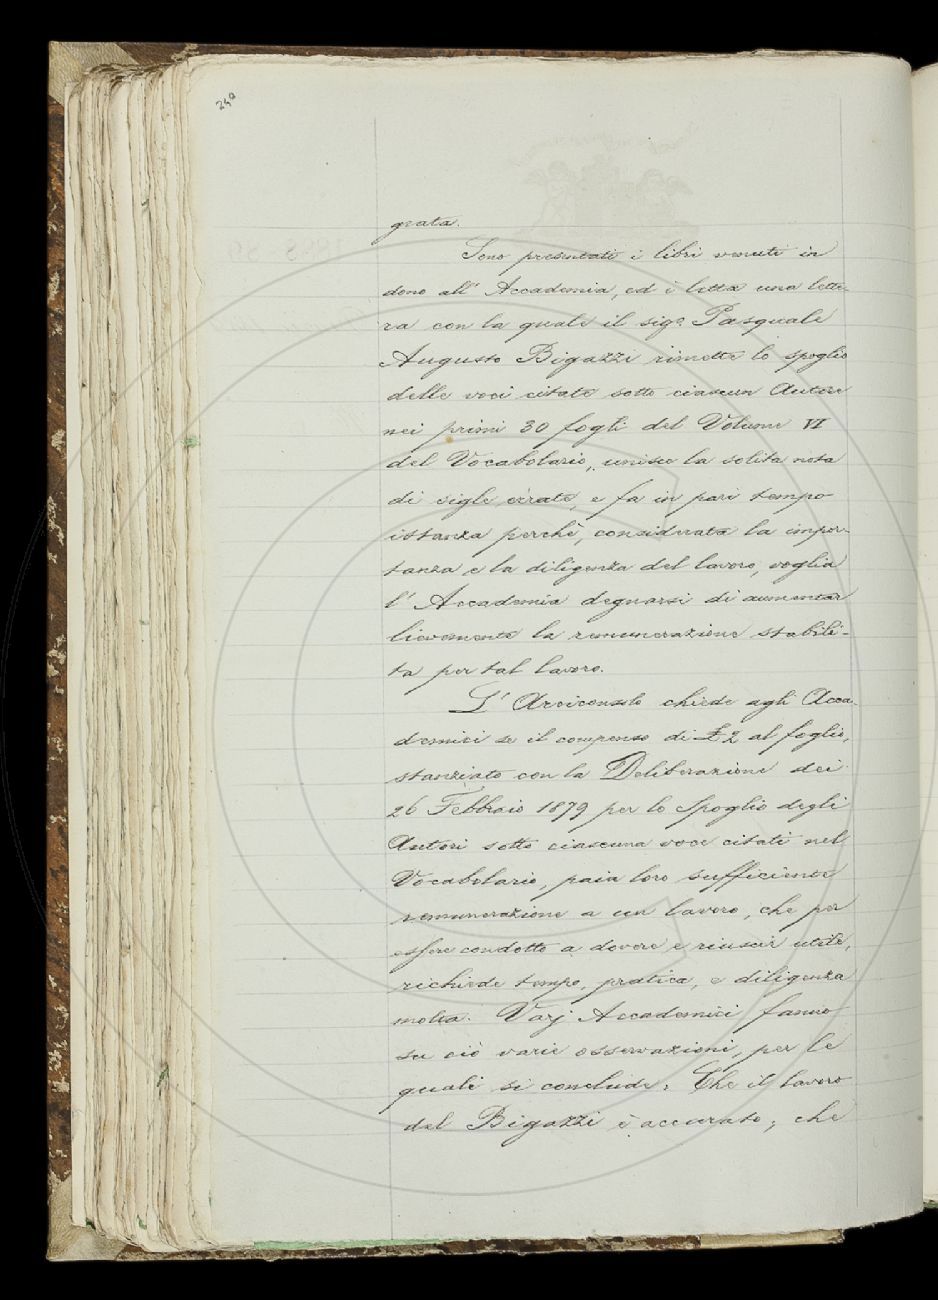 240
grata.
Sono presentati i libri venuti in
dono all' Accademia, ed è letta una lette-
ra con la quale il sigr. Pasquale
Augusto Bigazzi rimette lo spoglio
delle voci citate sotto ciascun Autore
nei primi 30 fogli del Volume VI
del Vocabolario, unisce la solita nota
di sigle errate, e fa in pari tempo
istanza perchè, considerata la impor-
tanza e la diligenza del lavoro, voglia
l' Accademia degnarsi di aumentar
lievemente la remunerazione stabili-
ta per tal lavoro.
L' Arciconsolo chiede agli Acca-
demici se il compenso di £ 2 al foglio,
stanziato con la Deliberazione dei
26 Febbraio 1879 per lo Spoglio degli
Autori sotto ciascuna voce citati nel
Vocabolario, paia loro sufficiente
remunerazione a un lavoro, che per
essere condotto a dovere e riuscir utile,
richiede tempo, pratica, e diligenza
molta. Varj Accademici fanno
su ciò varie osservazioni, per le
quali si conclude: Che il lavoro
del Bigazzi è accurato; che